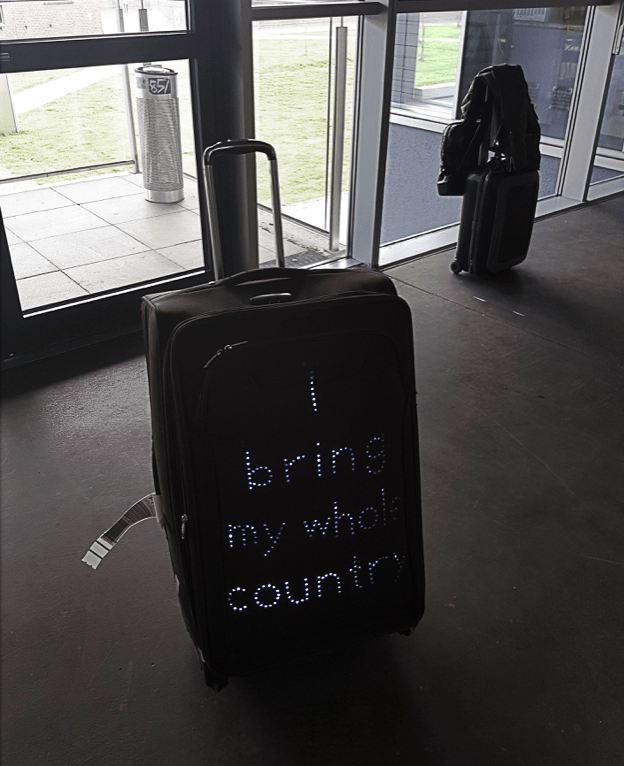 i
bring
my whole
country